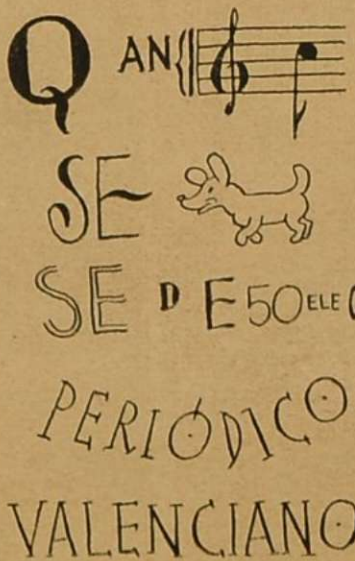 Q AN
SE
SE D E 50 ELE
PERIÓDICO
VALENCIANO